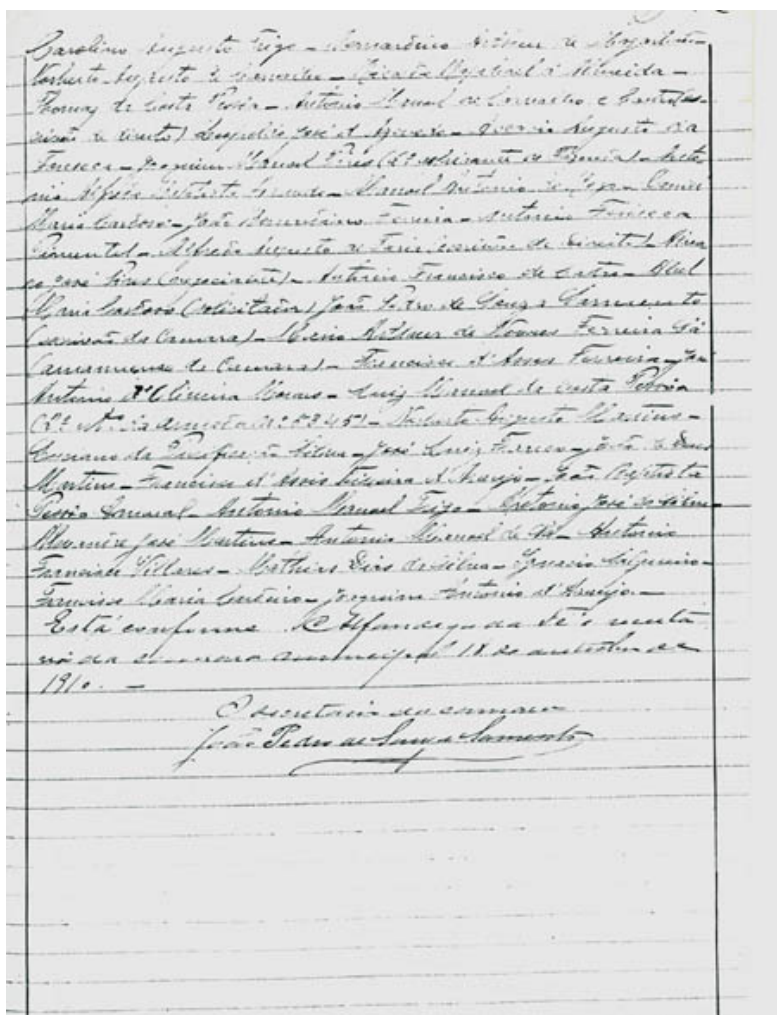 Carolino Augusto Trigo - Bernardino Arthur de
Norberto Augusto de - de Almeida -
Thomaz da Costa Pessôa - Antonio Manoel de Carvalho e Castro
de direito) Leopoldo José d'Azevedo - Augusto da
Fonseca - Joaquim Manoel Pires (2º aspirante de Fazenda) -
Alfredo - Manoel Antonio de -
Maria Cardoso - João Bernardino Ferreira - Antonio Fonseca
Pimentel - Alfredo Augusto de Faria (escrivão de direito) -
José Pires (negociante) - Antonio Francisco de Castro - Abel
Maria Cardoso (solicitador) João Pedro de Souza Sarmento
(escrivão da Camara) - Mario Arthur de Novaes Ferreira Sá
(amanuense da Camara) - Francisco d'Assis Ferreira - José
Antonio d'Oliveira Moraes - Luiz Manoel da Costa Pessôa
(2º da Armada nº 5345) - Norberto Augusto Martins -
da Purificação Silva - José Luiz - João de Deus
Martins - Francisco d'Assis Teixeira d'Araujo - João Baptista
Pessôa Amaral - Antonio Manoel Trigo - Antonio José da Silva
Alexandre José Martins - Antonio Manoel de Sá - Antonio
Francisco Villares - Mathias Dias da Silva - Ignacio Salgueiro -
Francisco Maria Cordeiro - Joaquim Antonio d'Araujo. -
Está conforme. Alfandega da Fé e secreta
ria da camara municipal 18 de outubro de
1910. -
O secretario da camara
João Pedro de Souza Sarmento